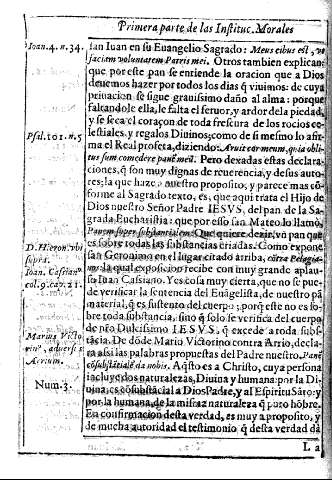 Primera parte de las Instituc. Morales
Ioan. 4. n. 34.
san Iuan en su Euangelio Sagrado: Meus cibus est, vt
faciam voluntatem Patris mei. Otros tambien explican:
que por este pan se entiende la oracion que a Dios
deuemos hazer por todos los dias q̃ viuimos: de cuya
priuacion se sigue grauissimo daño al alma: porque
faltandole ella, le falta el feruor, y ardor de la piedad,
y se seca el coraçon de toda frescura de los rocios ce-
lestiales, y regalos Diuinos; como de si mesmo lo afir-
Psal. 101. n. 5
ma el Real profeta, diziendo: Aruit cor meum, quia obli-
tus sum comedere panẽ meũ. Pero dexadas estas declara-
ciones, q̃ son muy dignas de reuerencia, y de sus auto-
res; la que haze a nuestro proposito, y parece mas cõ-
forme al Sagrado texto, es, que aqui trata el Hijo de
Dios nuestro Señor Padre IESVS, del pan de la Sa-
grada Eucharistia: que por esso san Mateo lo llamò,
Panem super substantialem. Que quiere dezir, vn pan que
es sobre todas las substancias criadas. Como expone
D. Hieron. vbi
supra.
san Geronimo en el lugar citado arriba, cõtra Pelagia-
Ioan. Cassianº
nos: la qual exposicion recibe con muy grande aplau-
col. 9. cap. 21.
so Iuan Cassiano. Y es cosa muy cierta, que no se pue-
de verificar la sentencia del Euangelista, de nuestro pã
material, q̃ es sustento del cuerpo; porq̃ este no es so-
bre toda substancia, sino q̃ solo se verifica del cuerpo
de nr̃o Dulcissimo IESVS, q̃ excede a toda subs-
Marius Victo
tãcia. De dõde Mario Victorino contra Arrio, decla-
rinº, aduersus
ra assi las palabras propuestas del Padre nuestro. Panẽ
Arrium.
cõsubstãtialẽ da nobis. Aqsto es a Christo, cuya persona
incluye dos naturalezas, Diuina y humana: por la Di-
Num. 3.
uina, es cõsubstãcial a Dios Padre, y al Espiritu Sãto: y
por la humana, de la misma naturaleza q̃ puro hõbre.
En confirmacion desta verdad, es muy a proposito, y
de mucha autoridad el testimonio q̃ desta verdad dà
L a